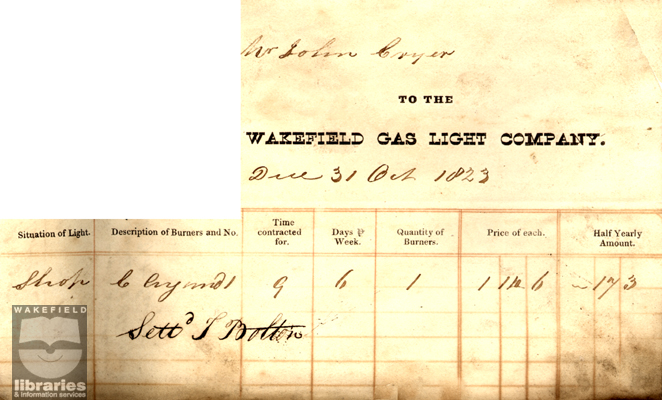 Mr John Cryer
TO THE
WAKEFIELD GAS LIGHT COMPANY.
Due 31 Oct 1823
Situation of Light. Description of Burners and No. Time contracted for. Days ⅌ Week. Quantity of Burners. Price of each. Half Yearly Amount.
Shop C 1 9 6 1 1 14 6 - 17 3
Settd J Bolton
WAKEFIELD
libraries
& information services